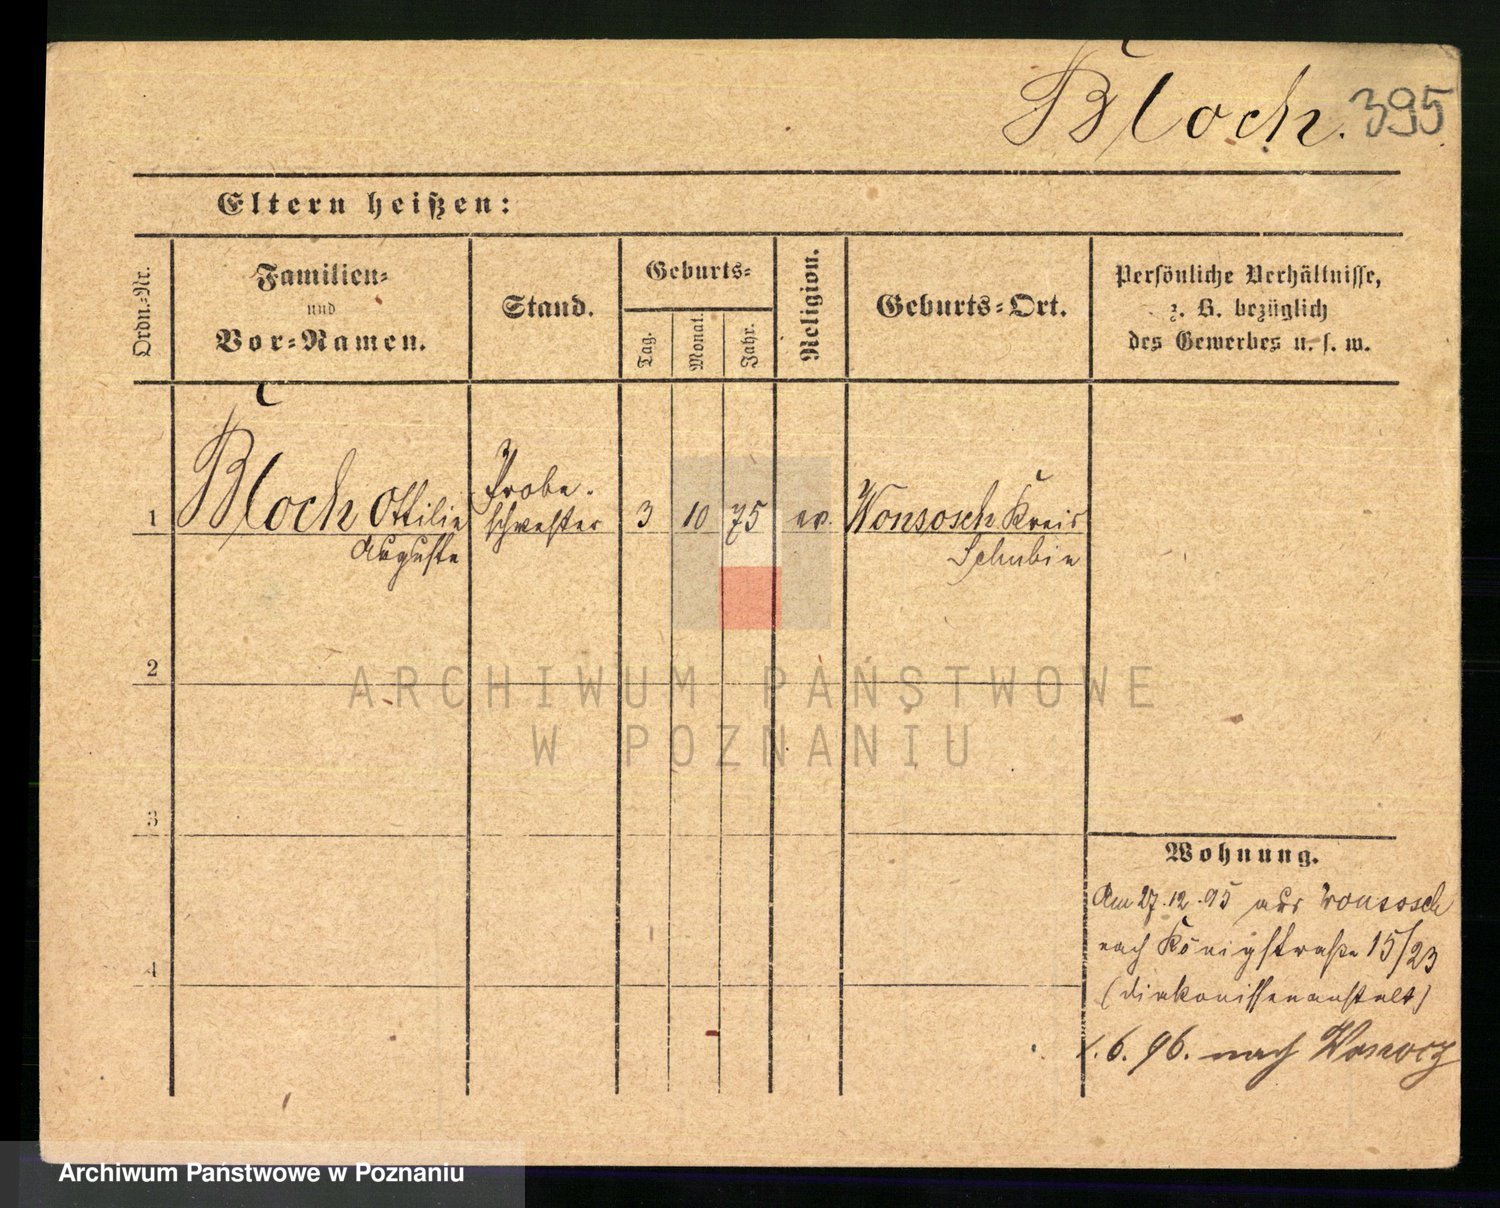 Bloch. 395
Eltern heißen:
Ordn.-Nr.
Familien-
und
Vor-Namen.
Stand.
Geburts-
Tag.
Monat.
Jahr.
Religion.
Geburts-Ort.
Persönliche Verhältnisse,
z. B. bezüglich
des Gewerbes u. s. w.
1 Bloch Ottilie
Auguste
Probe-
schwester
3 10 75 ev. Wonsosch Kreis
Schubin
2
3
4
ARCHIWUM PAŃSTWOWE
W POZNANIU
Wohnung.
Am 27.12.95 aus Wonsosch
nach Königstraße 15/23
(Diakonissenanstalt)
6. 96. nach
Archiwum Państwowe w Poznaniu